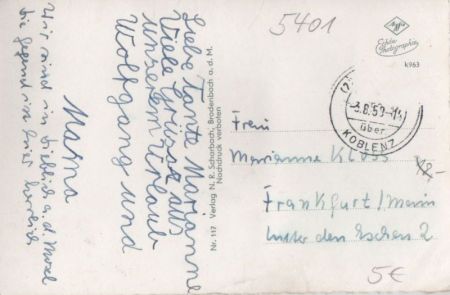 5401
Liebe Tante Marianne
Viele Grüsse aus
unserem Urlaub
Wolfgang und
Mama
Wir sind in a. d. Mosel
die Gegend ist hier herrlich
Nr. 117 Verlag N. R. Scharbach, Bredenbach a. d. M.
Nachdruck verboten
Agfa
Echte
Photographie
k963
-3.8.59-14
über
KOBLENZ
Frau
Marianne
Frankfurt/Main
Unter den Eschen 2
5€